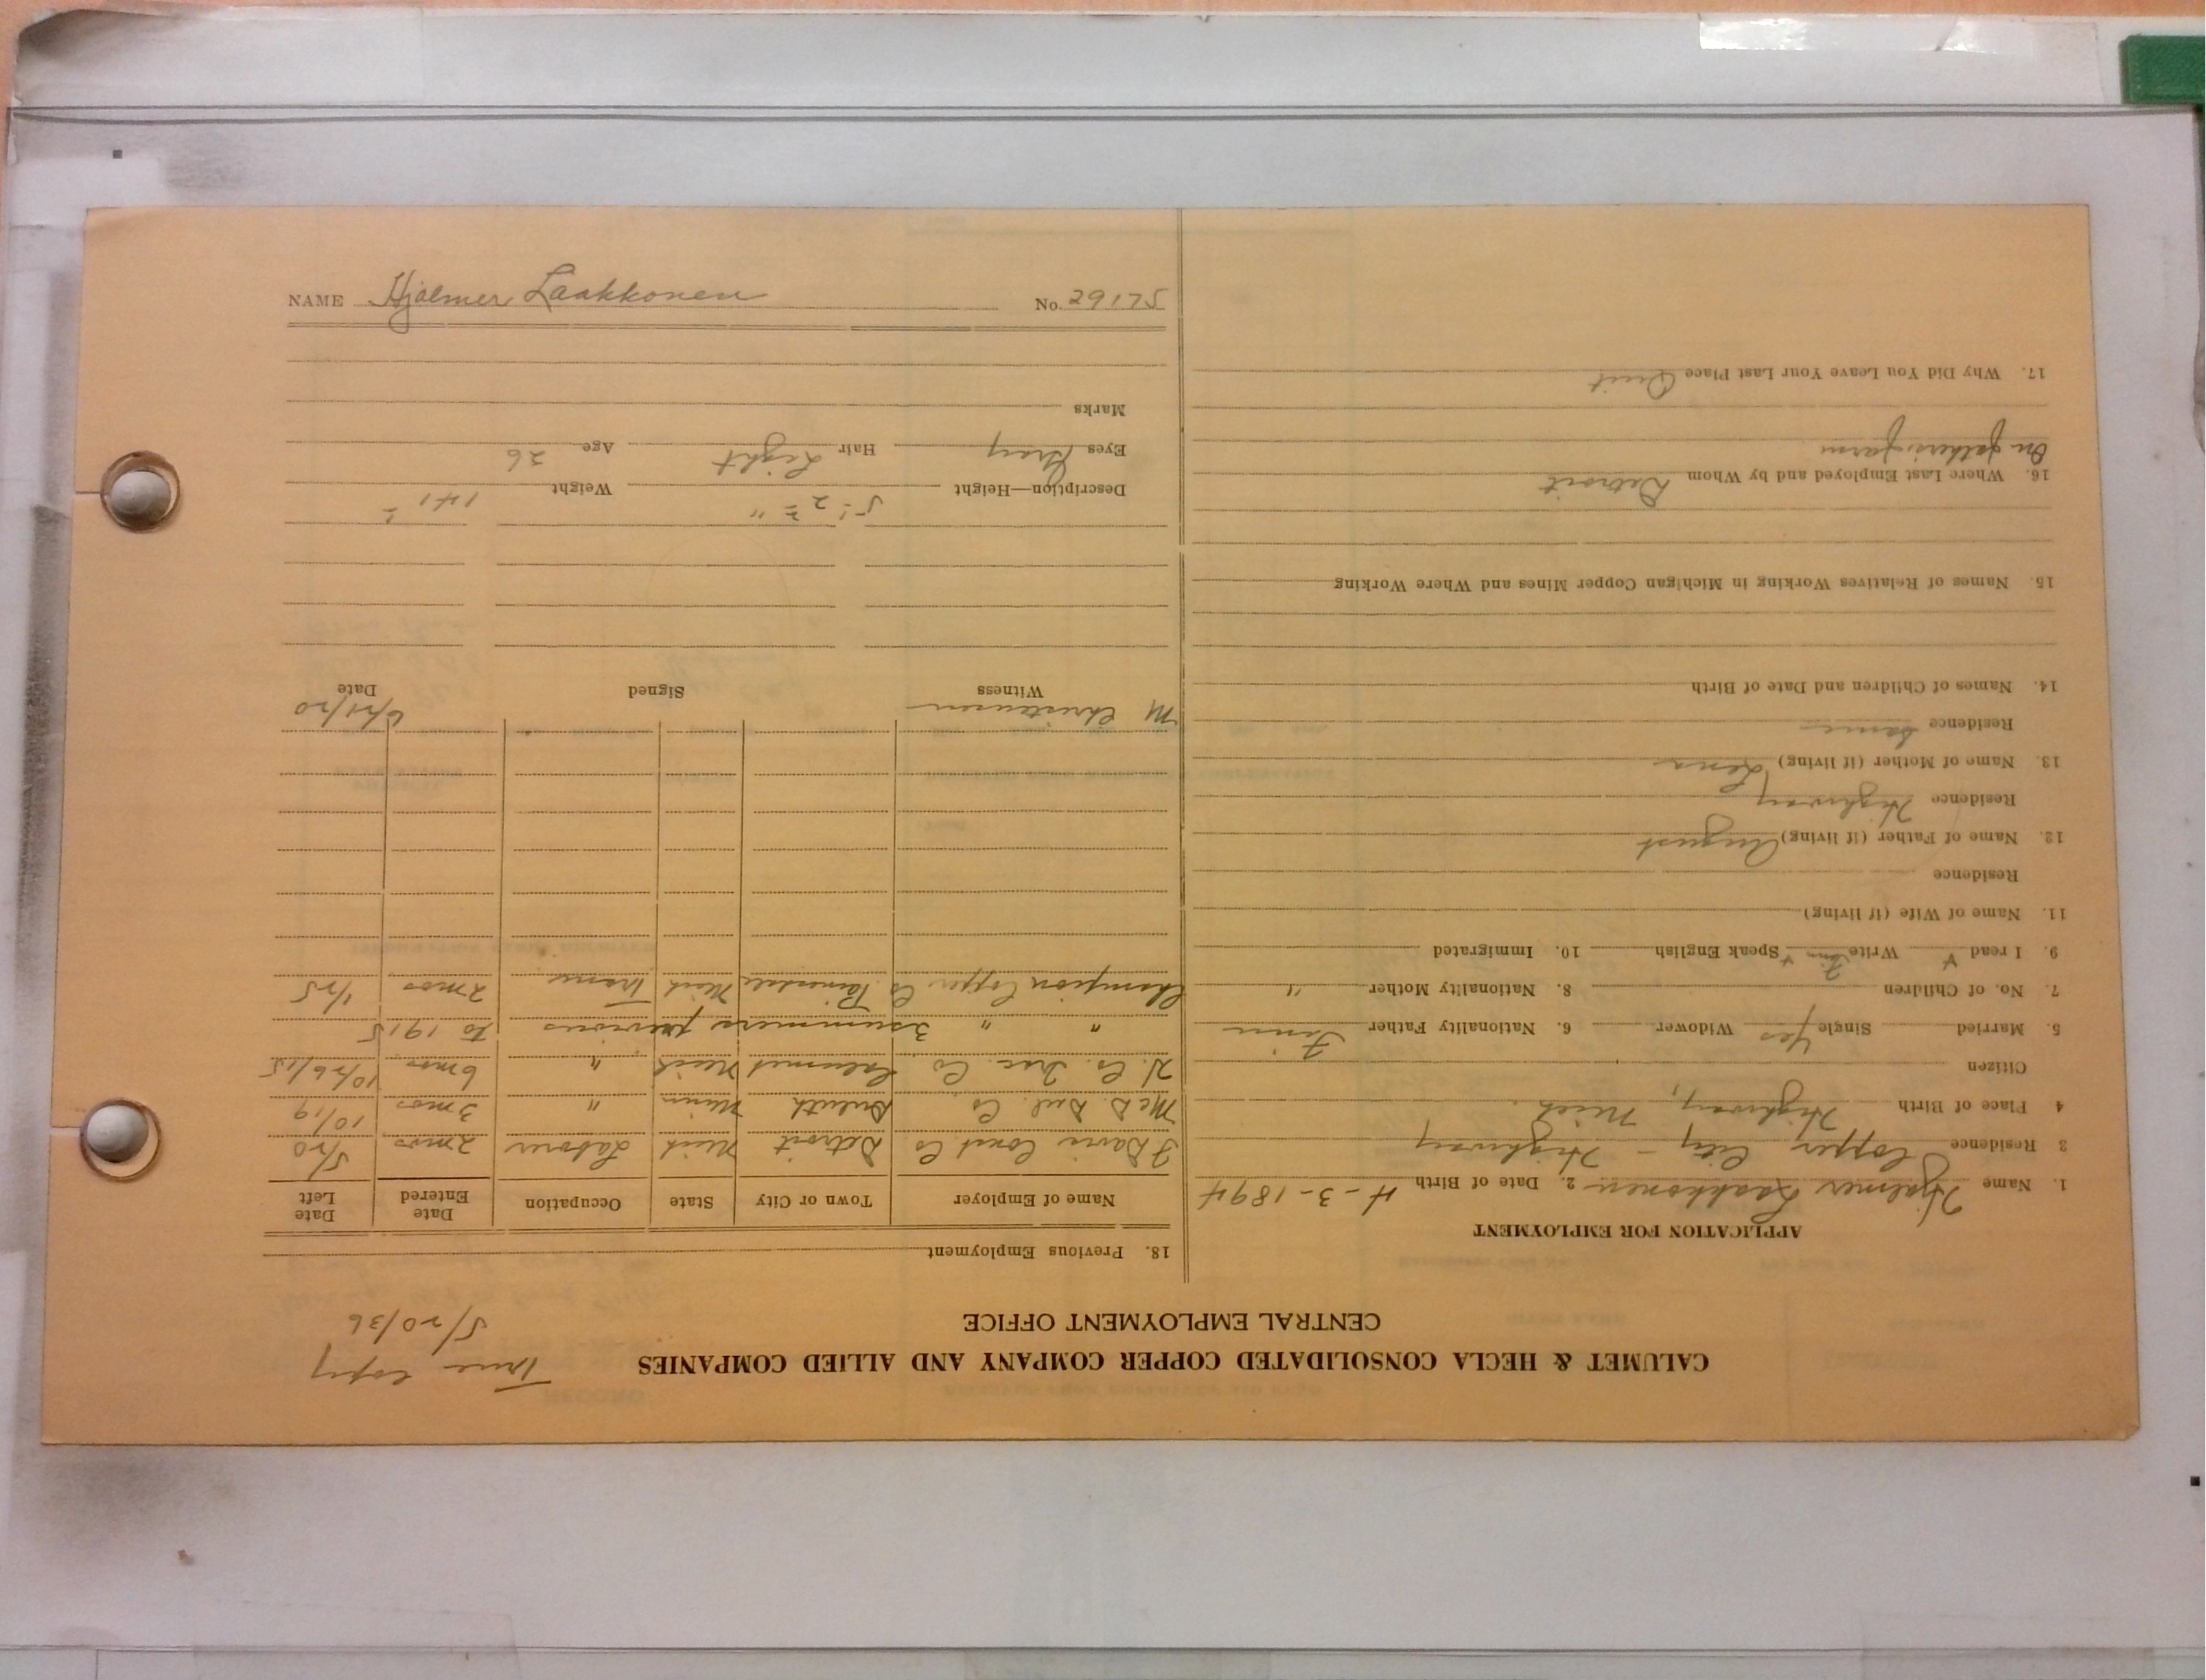 NAME Hjalmer Laakkonen No. 29175
True copy
5/20/36
CALUMET & HECLA CONSOLIDATED COPPER COMPANY AND ALLIED COMPANIES
CENTRAL EMPLOYMENT OFFICE
APPLICATION FOR EMPLOYMENT
1. Name Hjalmer Laakkonen 2. Date of Birth 4-3-1894
3 Residence Copper City - Highway
4 Place of Birth Highway, Mich.
Citizen
5. Married Single Yes Widower 6. Nationality Father Finn
7. No. of Children 8. Nationality Mother "
9. I read Write Finn Speak English 10. Immigrated
11. Name of Wife (if living)
Residence
12. Name of Father (if living) August
Residence Highway
13. Name of Mother (if living) Lena
Residence Same
14. Names of Children and Date of Birth
15. Names of Relatives Working in Michigan Copper Mines and Where Working
16. Where Last Employed and by Whom Detroit
On fathers farm
17. Why Did You Leave Your Last Place Quit
18. Previous Employment
Name of Employer Town or City State Occupation Date Entered Date Left
F Davis Const Co Detroit Mich Laborer 2 mos 5/20
McD. Dul. Co. Duluth Minn " 3 mos 10/19
H. Co. Trac. Co Calumet Mich " 6 mos 10/26/15
" " 3 summers previous to 1915
Champion Copper Co. Painesdale Mich Tram 2 mos 1/25
M Christensen 6/21/20
Witness Signed Date
5'-2 ½" 141 -
Description—Height Weight
Eyes Gray Hair Light Age 26
Marks